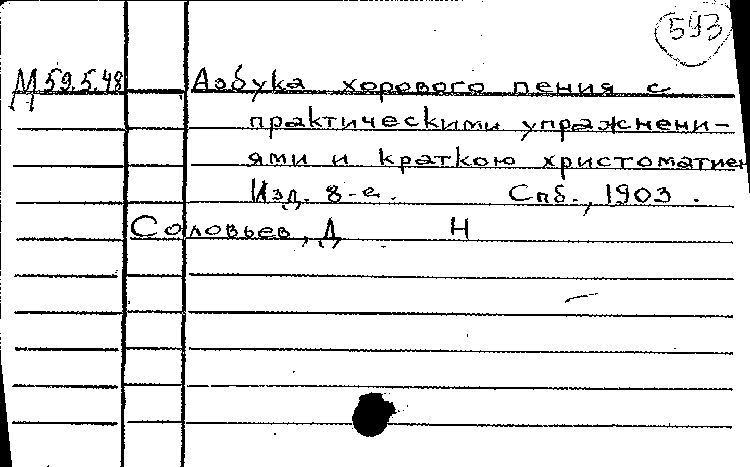 593
М 59.5.48 Азбука хорового пения с
практическими упражнени-
ями и краткою христоматиею
Изд. 8-е. Спб., 1903.
Соловьев, Д Н